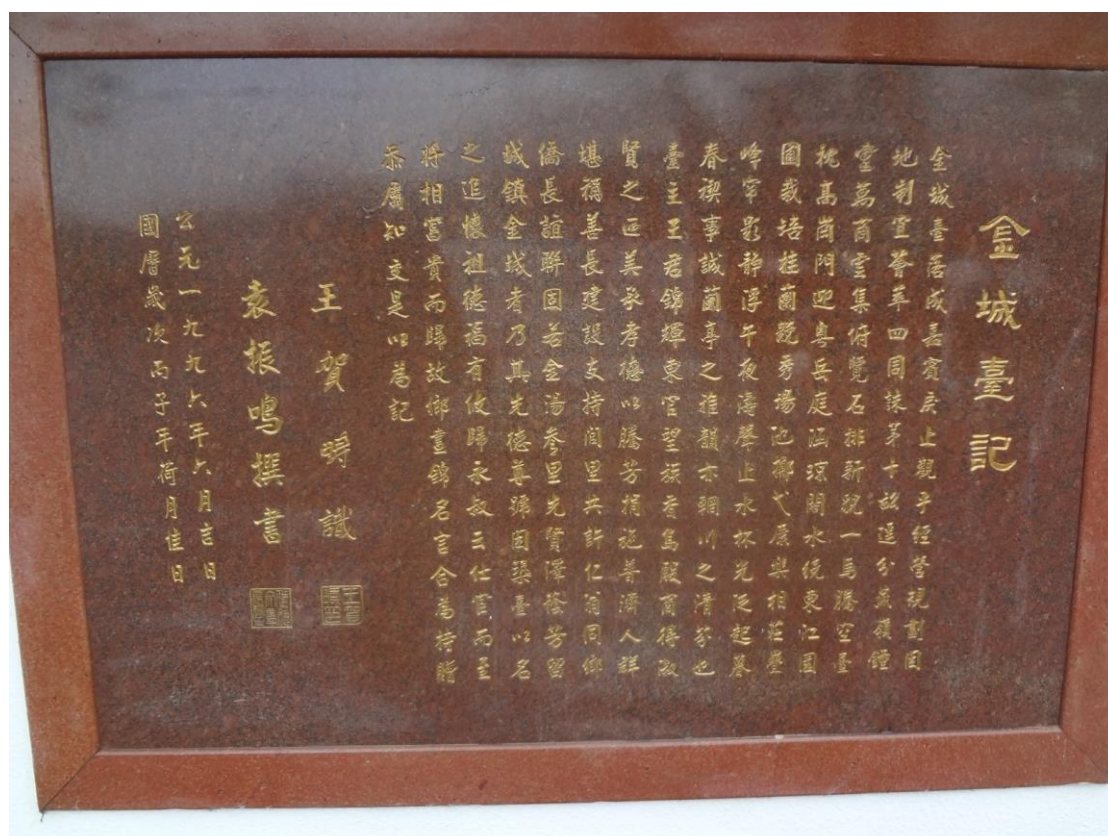 金城臺記
金城臺落成嘉賓戾止觀乎經營規劃因
地制宜薈萃四同棟第十詒遥分嶺鍾
靈萬商雲集俯覽石排新貌一馬騰空臺
枕高崗門迎粵岳庭涵琼閣水繞東江園
圃栽培桂蘭競秀場池鄉弋展樂相莊疊
峰窣影靜浮午夜濤聲止水杯光泛起暮
春禊事誠蘭亭之雅韻亦輞川之清芬也
臺主王君錦輝東莞望族香島殷商得取
賢之逛美承孝德以騰芳捐施普濟人群
堪稱善長建設支持閭里共訢仁翁同鄉
僑長誼聯固若金湯參里先賢澤蔭芳留
城鎮金城者乃其先德尊號因築臺以名
之追懷祖德福有攸歸永叔云仕宦而至
將相富貴而歸故鄉晝錦名言合為持贈
忝屬知交是以為記
王賀明識
袁振鳴撰書
公元一九九六年六月吉日
國曆歲次丙子年荷月佳日